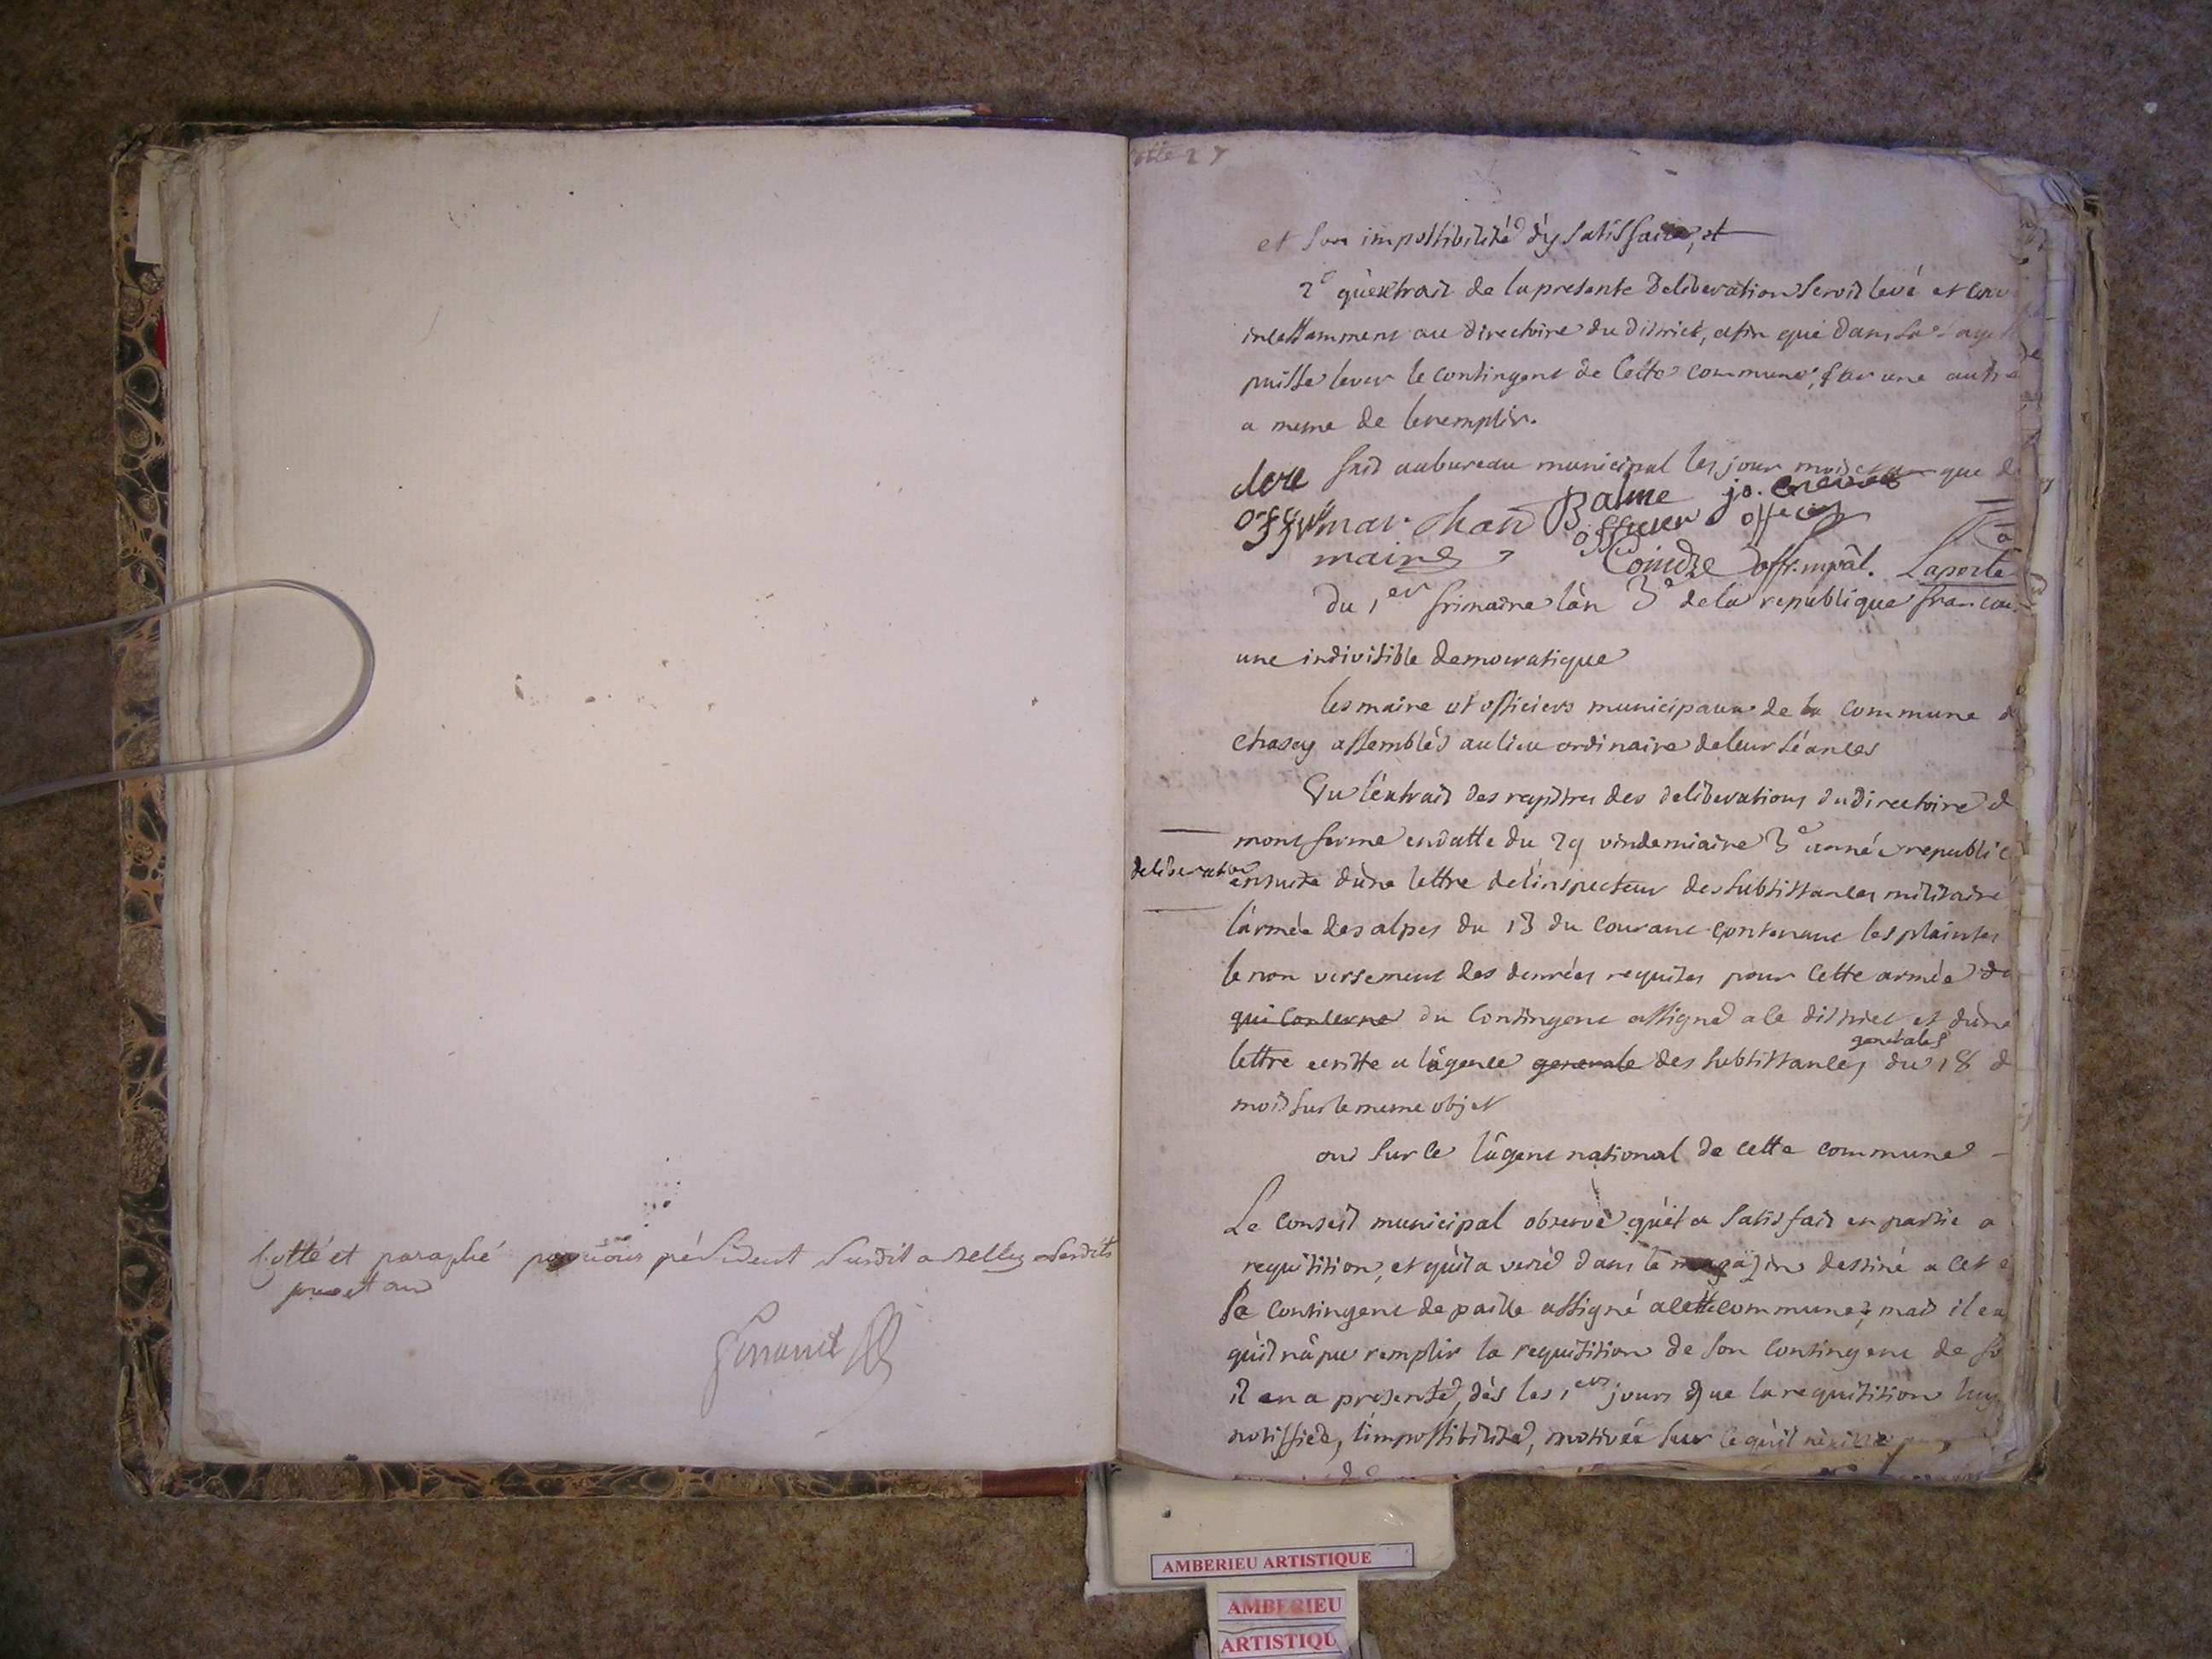 cotté et paraphé par nous président susdit a Belley lesdits
jour et an
cotte 27
et son impossibilité d'y satisfaire, et
2° qu'extrait de la presente deliberation seroit levé et
incessamment au directoire du district, afin que dans sa
puisse lever le contingent de cette commune, par une autre
a meme de le remplir.
fait au bureau municipal les jour mois et an que
clere Balme jo.
off marchand officier officier
maire Coindre off. mpâl. Laporte
Du 1er frimaire l'an 3e de la republique
une indivisible democratique
les maire et officiers municipaux de la commune
chasey assemblés au lieu ordinaire de leur séances
Vu l'extrait des registres des deliberations du directoire
montferme en datte du 29 vindemiaire 3e année
deliberation
ensuite d'une lettre de l'inspecteur des subsistances militaire
l'armée des alpes du 13 du courant contenant les plaintes
le non versement des denrées requises pour cette armée
qui concerne du contingent assigné a ce district et d'une
generales
lettre ecritte a l'agence generale des subsistances du 18
mois sur le meme objet
oui sur ce l'agent national de cette commune
Le conseil municipal observe qu'il a satisfait en partie a
requisition, et qu'il a versé dans le magazin destiné a cet
le contingent de paille assigné a cette commune; mais il
qu'il n'a pu remplir la requisition de son contingent de
il en a presenté, dès les 1ers jours que la requisition luy
notiffiée, l'impossibilité, motivée sur ce qu'il
AMBERIEU ARTISTIQUE
AMBERIEU
ARTISTIQU